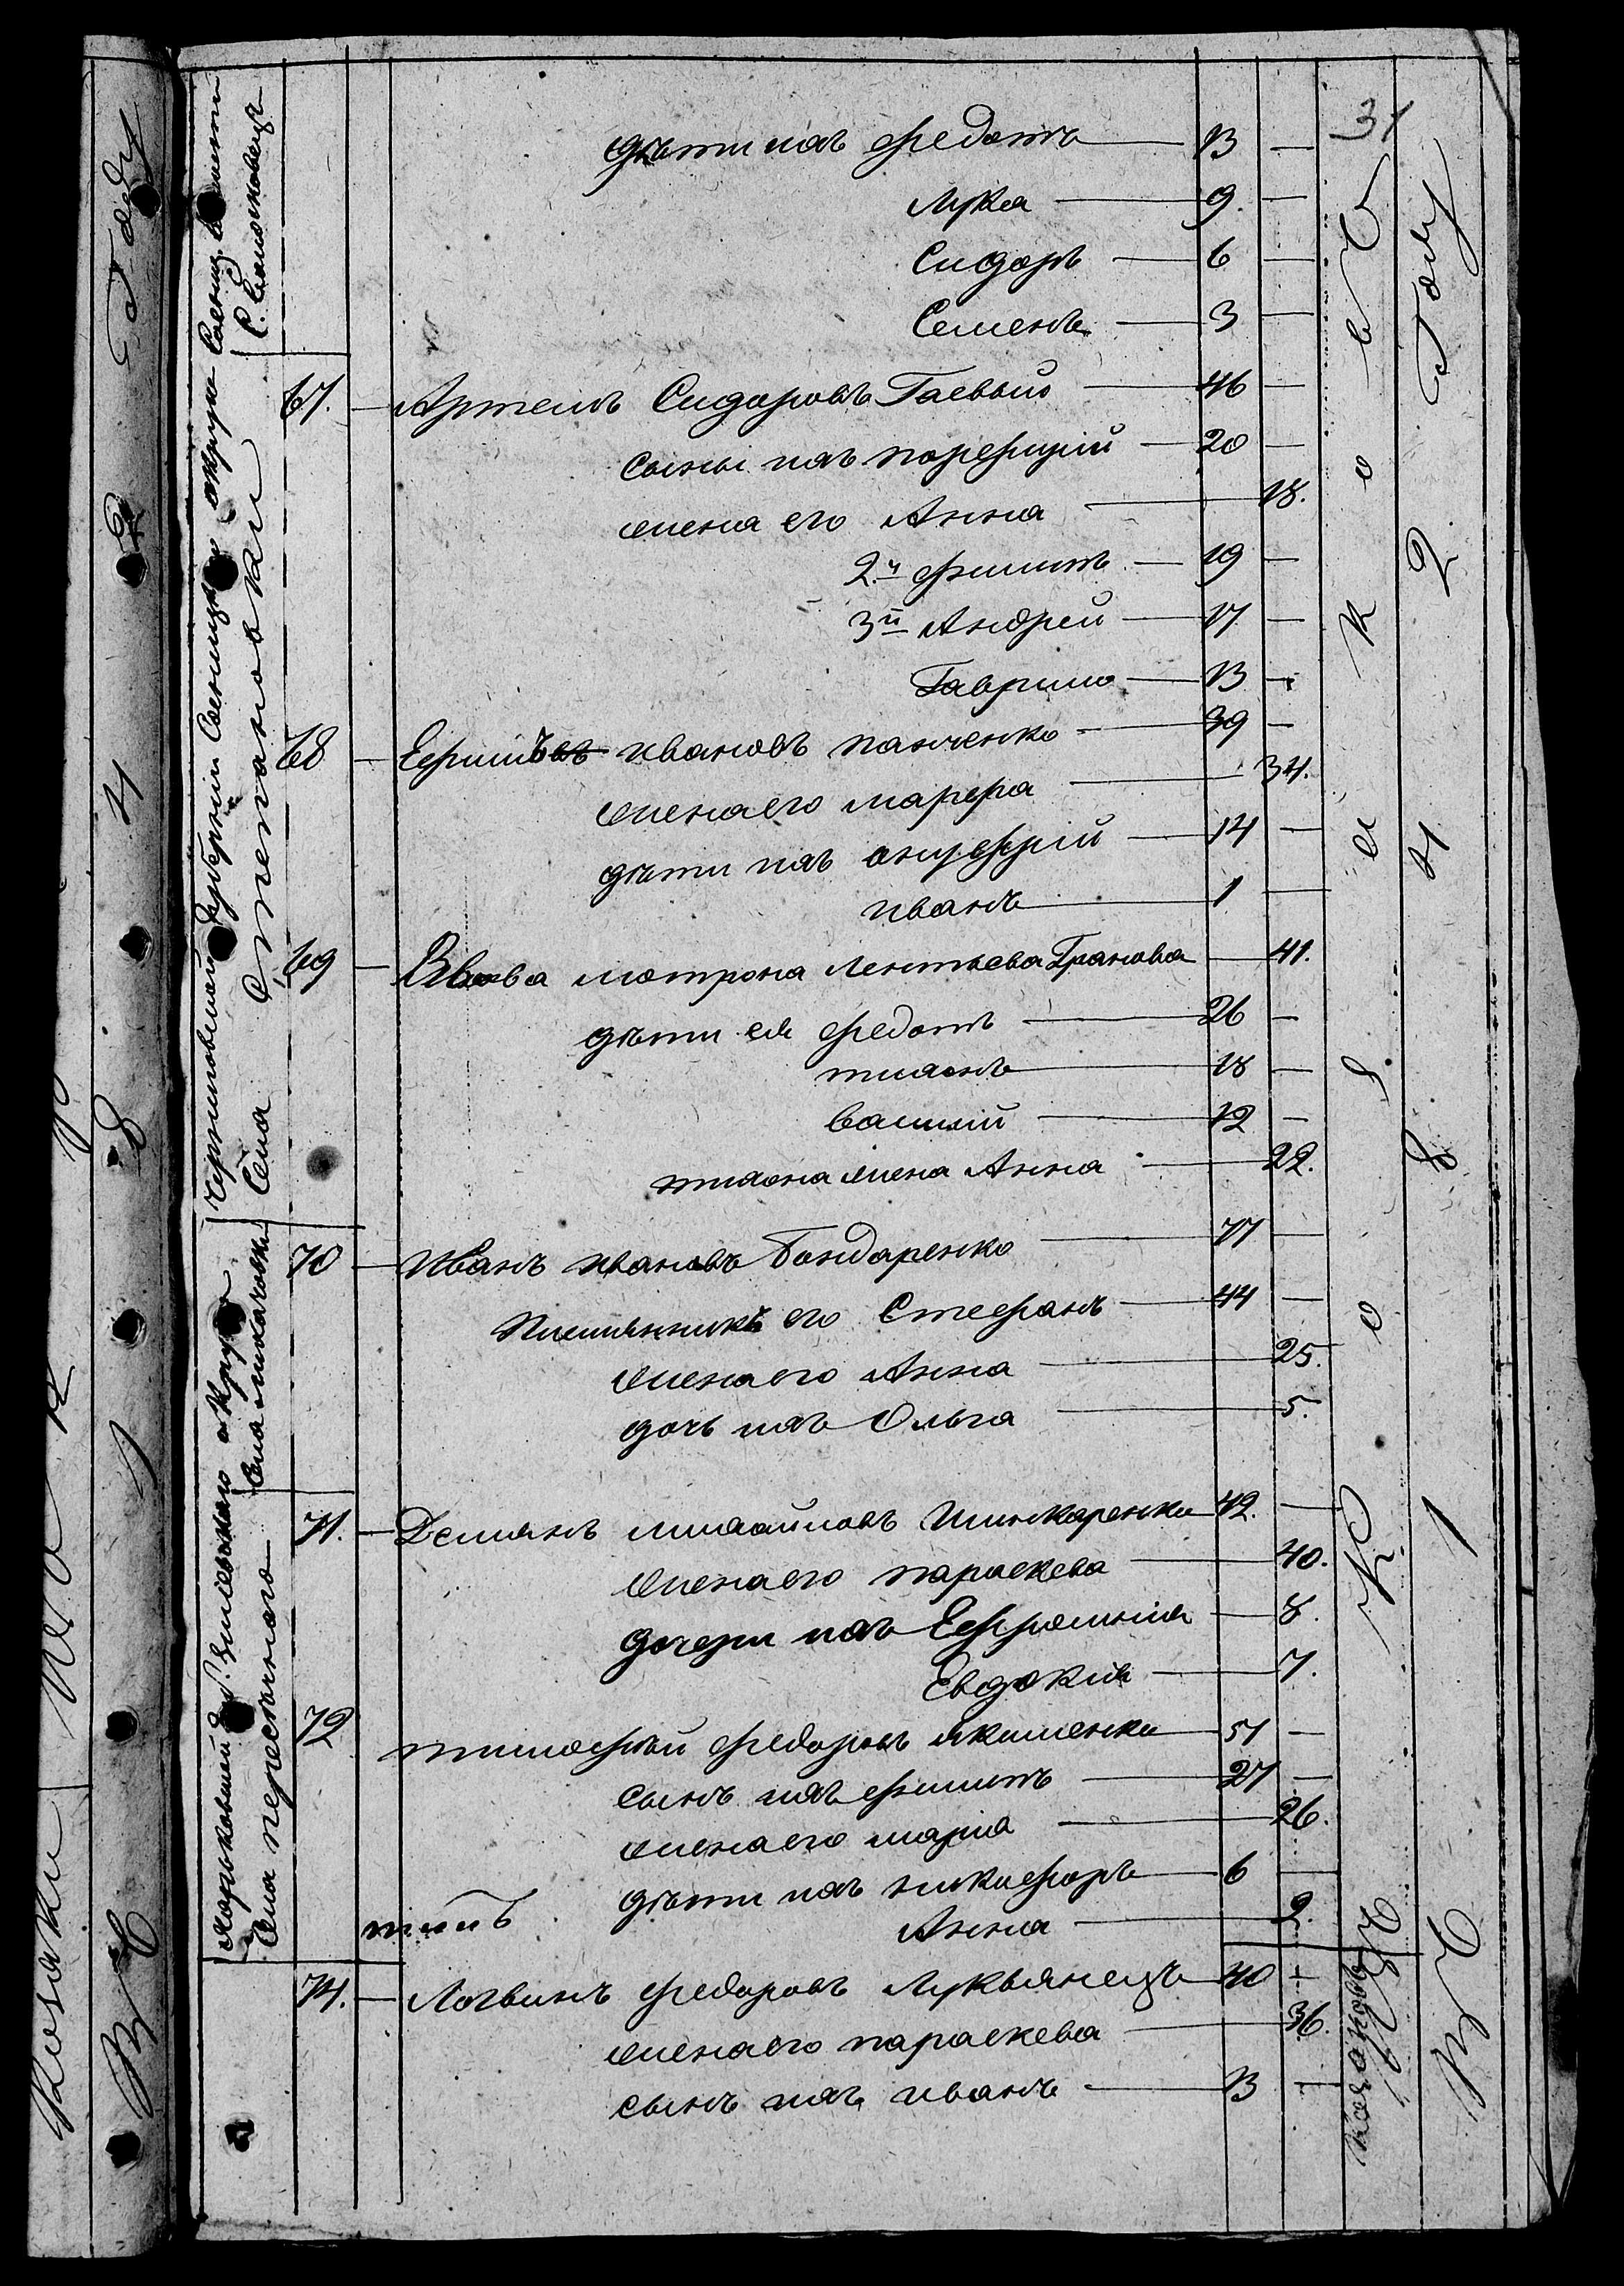 31
дѣти ихъ Федотъ — 13 —
Лука — 9. —
Сидоръ — 6 —
Семенъ — 3 —
67. — Артемъ Сидоровъ Гаевый — 46 —
сыны ихъ Порфирій — 20 —
жена его Анна — 18.
2.й Филипъ — 19 —
3й Андрей — 17 —
Гаврило — 13 —
68 — Ефимъ Ивановъ Панченко — 39 —
жена его Марфа — 34.
дѣти ихъ Онуфрій — 14 —
Иванъ — 1 —
69 — Вдова Мотрона Леонтьева Гранова — 41.
дѣти ея Федотъ — 26 —
Тихонъ — 18 —
Василій — 12 —
Тихона жена Анна — 22.
70 — Иванъ Ивановъ Бондаренко — 77 —
племянникъ его Стефанъ — 44 —
жена его Анна — 25.
дочь ихъ Ольга — 5.
71. — Демьянъ Михайловъ Шинкаренко 42. —
жена его Параскева — 40.
дочери ихъ Ефросинія — 8.
Евдокія — 7.
72 Тимофѣй Федоровъ Якименко — 51 —
сынъ ихъ Филипъ — 27 —
жена его Марія — 26.
дѣти ихъ Никифоръ — 6 —
Анна — 2.
74. — Логвинъ Федоровъ Лукьянецъ — 40 —
жена его Параскева — 36.
сынъ ихъ Иванъ — 13 —
Черниговской Губерніи Сосницкаго округа
Села Степановки
Села Лихачовки
Харьковской Г. Зміевскаго округа
Козаковъ
Въ 1842 Году
Козаки
Въ 184 Году